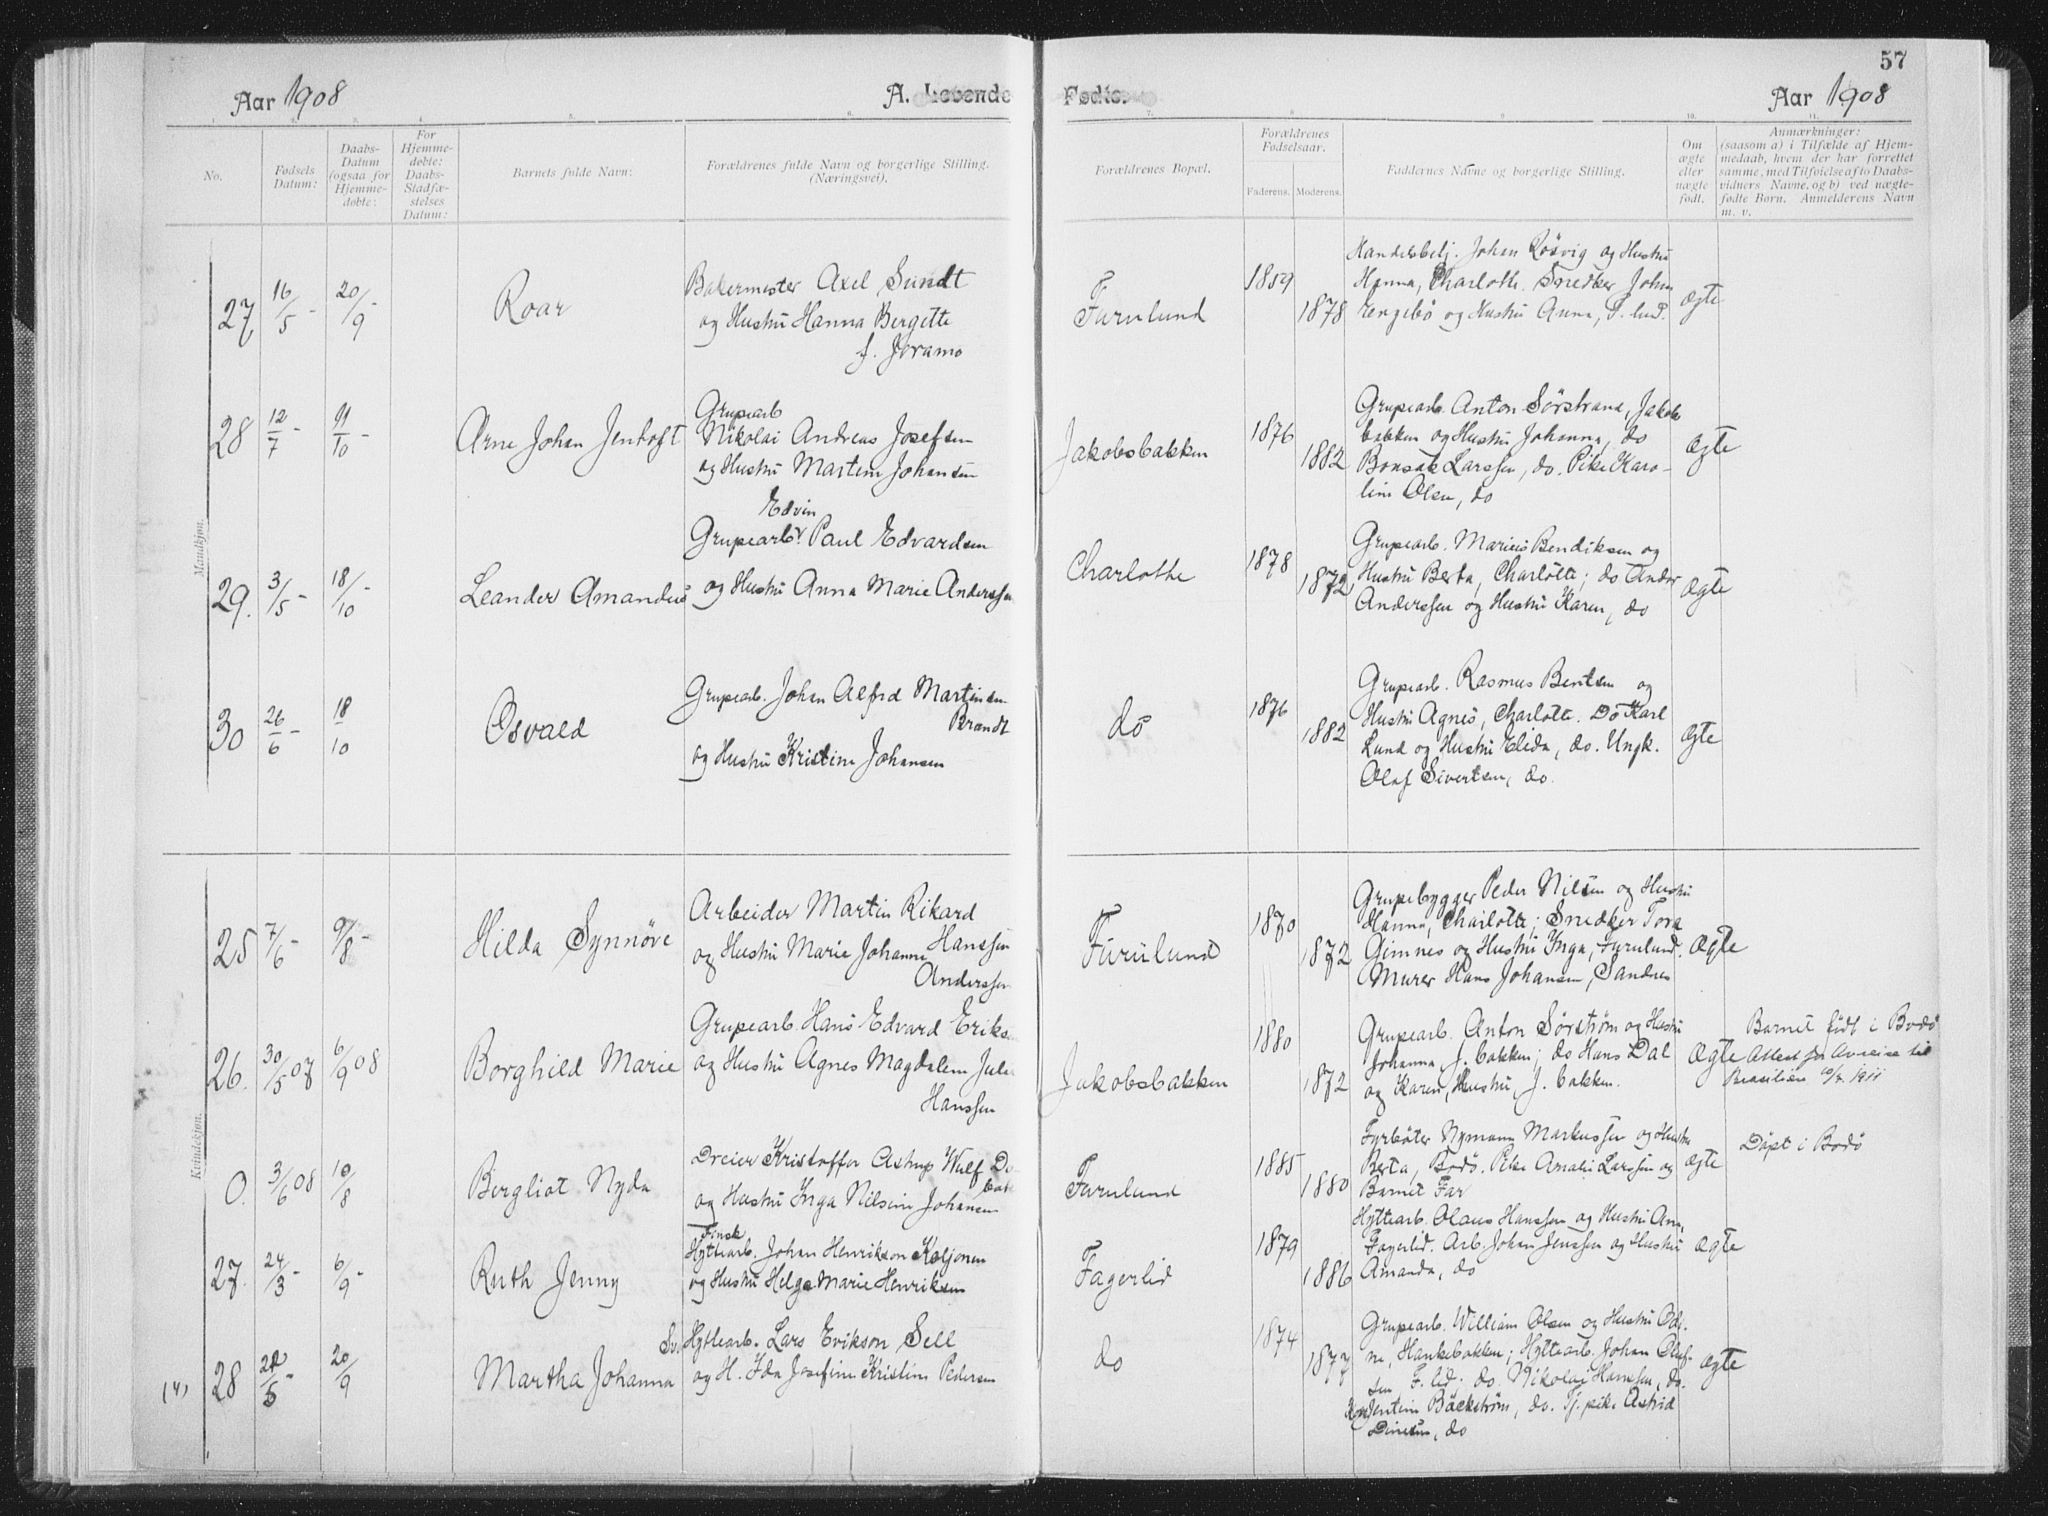 57
Aar 1908
A. Levende Fødte.
Aar 1908
1. 2. 3. 4. 5. 6. 7. 8. 9. 10. 11.
No.
Fødsels Datum:
Daabs-Datum (ogsaa for Hjemme-døbte:
For Hjemme-døbte: Daabs-Stadfæ-stelses Datum:
Barnets fulde Navn:
Forældrenes fulde Navn og borgerlige Stilling. (Næringsvei).
Forældrenes Bopæl.
Forældrenes Fødselsaar.
Faderens. Moderens.
Faddernes Navne og borgerlige Stilling.
Om ægte eller uægte født.
Anmærkninger:
(saasom a) i Tilfælde af Hjem-
medaab, hvem der har forrettet
samme, med Tilføielse af to Daabs-
vidners Navne, og b) ved uægte-
fødte Børn. Anmelderens Navn
m. v.
Mandkjøn.
27, 16/5 - 20/9 -
Roar
Bakermester Axel Sundt
og Hustru Hanna Bergette
f. Joramo
Furulund
1859
1878
Handelsbetj. Johan Røsvig og Hustru
Hanna, Charlotte. Snedker Johan
Kengsbø og Hustru Anna, F. lund.
ægte
28 12/7 - 11/10 -
Arne Johan Jentoft
Grupearb
Nikolai Andreas Josefsen
og Hustru Martine Johansen
Jakobsbakken
1876
1882
Grupearb. Anton Sørstrand, Jakobs
bakken og Hustru Johanna, do
Bonsak Larssen, do. Pike Karo-
line Olsen, do
ægte
29. 3/5 - 18/10 -
Leander Amandus
Edvin
Grupearb. Paul Edvardsen
og Hustru Anna Marie Anderssen
Charlotte
1878
1872
Grupearb. Marius Bendiksen og
Hustru Berta, Charlotte; do Andor
Anderssen og Hustru Karen, do
ægte
30 26/6 - 18/10
Osvald
Grupearb. Johan Alfred Martinsen
Brandt
og Hustru Kristine Johansen
do
1876
1882
Grupearb. Rasmus Bentsen og
Hustru Agnes, Charlotte. Do Karl
Lund og Hustru Elida, do. Ungk.
Olaf Sivertsen, do.
ægte
Kvindekjøn.
25 7/6 - 9/8 -
Hilda Synnöve
Arbeider Martin Rikard
Hanssen
og Hustru Marie Johanne
Anderssen
Furulund
1870
1872
Grupebygger Peder Nilsen og Hustru
Hanna, Charlotte; Snedker Tora
Gimnes og Hustru Inga, Furulund.
Murer Hans Johansen, Sandnes
ægte
26. 30/5 07 6/9 08
Borghild Marie
Grupearb. Hans Edvard Eriks
og Hustru Agnes Magdalene Jul
Hanssen
Jakobsbakken
1880
1872
Grupearb. Anton Sørstrøm og Hustru
Johanna, J. bakken; do Hans Dal
og Karen, Hustru, J. bakken.
ægte
Barnet født i Bodø
Attest for Avreise til
Brasilien 1911
0. 3/6 08 10/8
Bergliot Nyda
Dreier Kristoffer Astrup Wulf
og Hustru Inga Nilsine Johansen
Furulund
1885
1880
Fyrbøter Nymann Markussen og Hustru
Berta, Bodø. Pike Amalie Larssen og
Barnet Far
ægte
Døpt i Bodø
27. 24/3 - 6/9 -
Ruth Jenny
Finsk
Hyttearb. Johan Henrikson Koljonen
og Hustru Helga Marie Henriksen
Fagerlid
1879
1886
Hyttearb. Olaus Hanssen og Hustru Ana,
Fagerlid. Arb. Johan Jenssen og Hustru
Amanda, do
ægte
(4) 28 22/5 - 20/9
Martha Johanna
Sv. Hyttearb. Lars Erikson Sell
og H. Ida Josefine Kristine Pedersen
do
1874
1877
Grupearb. William Olsen og Hustru Odi-
ne, Hankebakken; Hyttearb. Johan Oluf-
sen, F. lid. do. Nikolai Hanssen, do.
Bäckström, do. Tj. pike Astrid
do
ægte